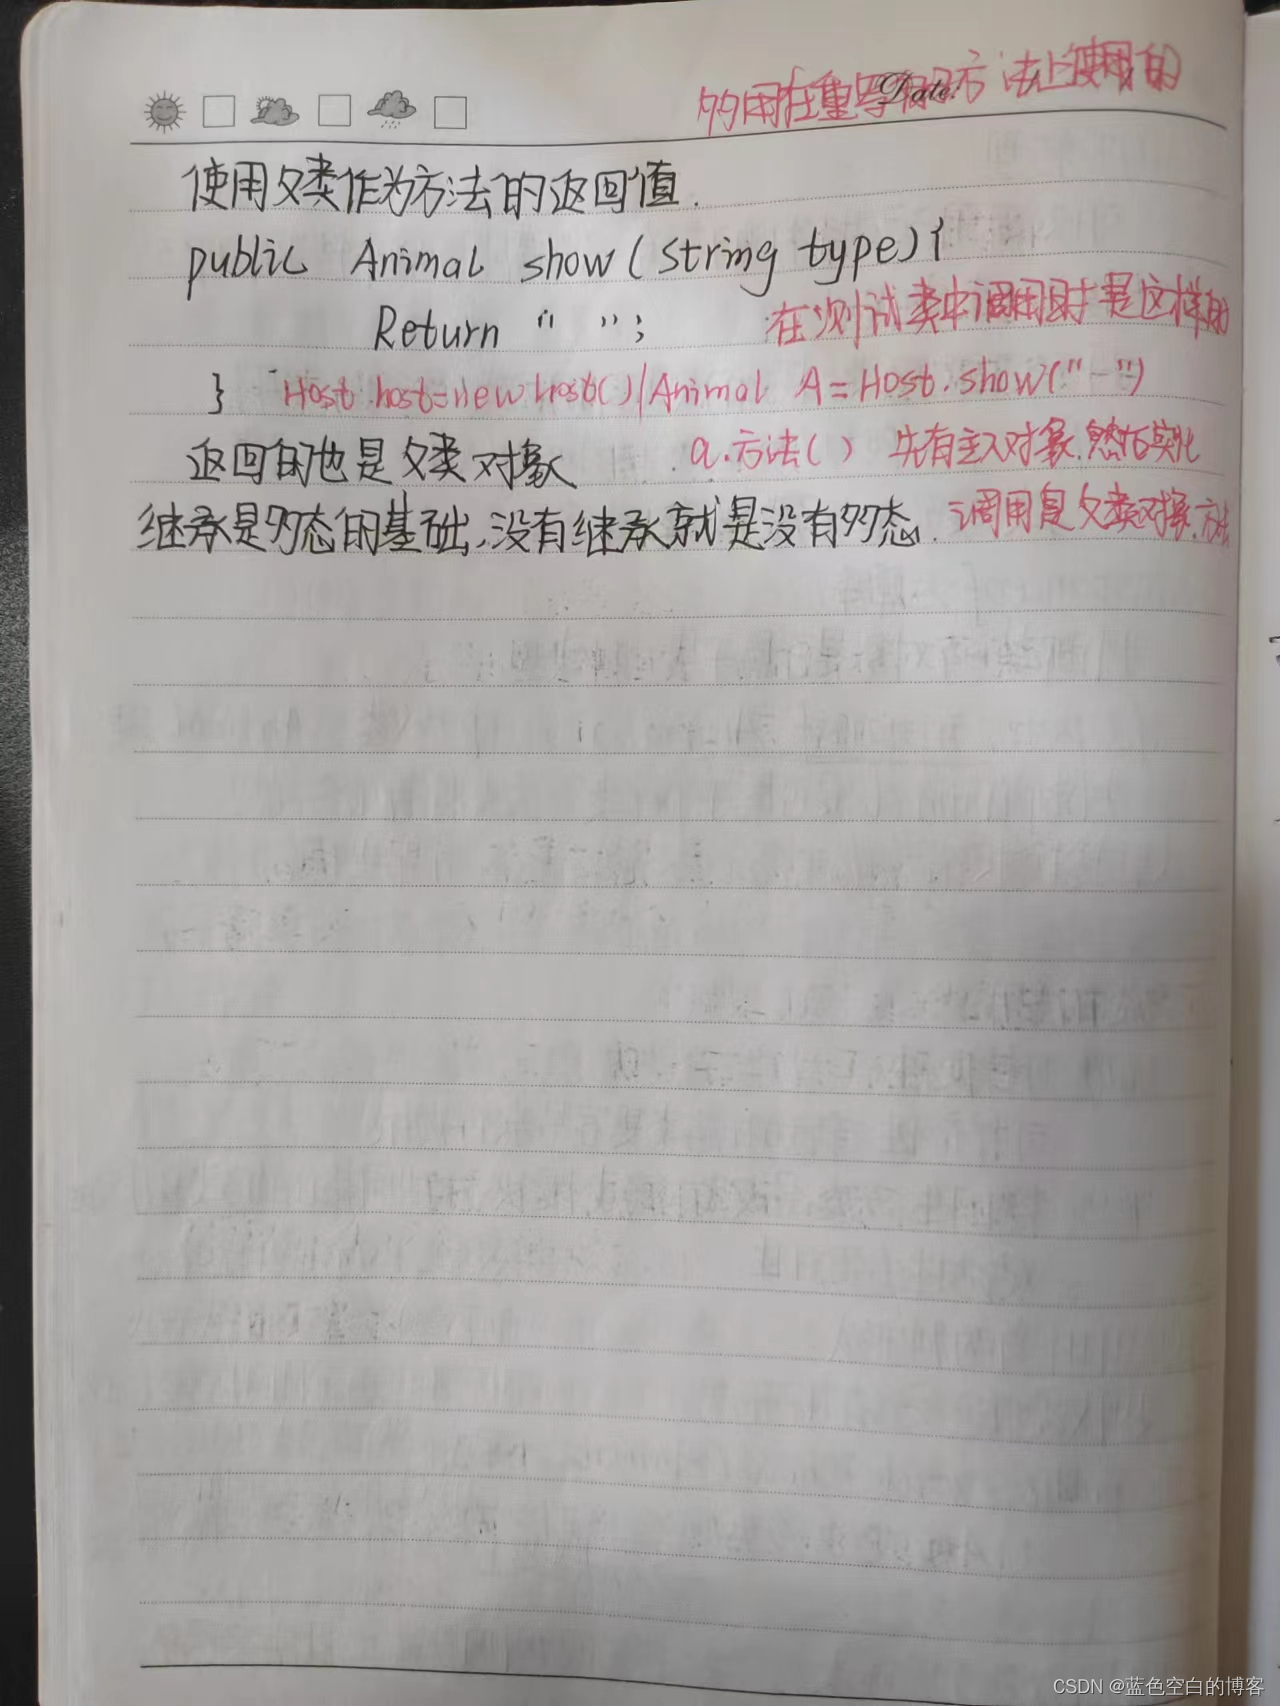 多用在重写的方法上使用的
Date:
使用父类作为方法的返回值.
public Animal show(string type){
Return " ";
在测试类中调用时是这样的
}
Host host=new host()/Animal A=Host.show("-")
返回的也是父类对象
a.方法() 先有主人对象,然后实化
继承是多态的基础,没有继承就是没有多态.
调用是父类对象.方法
CSDN @蓝色空白的博客